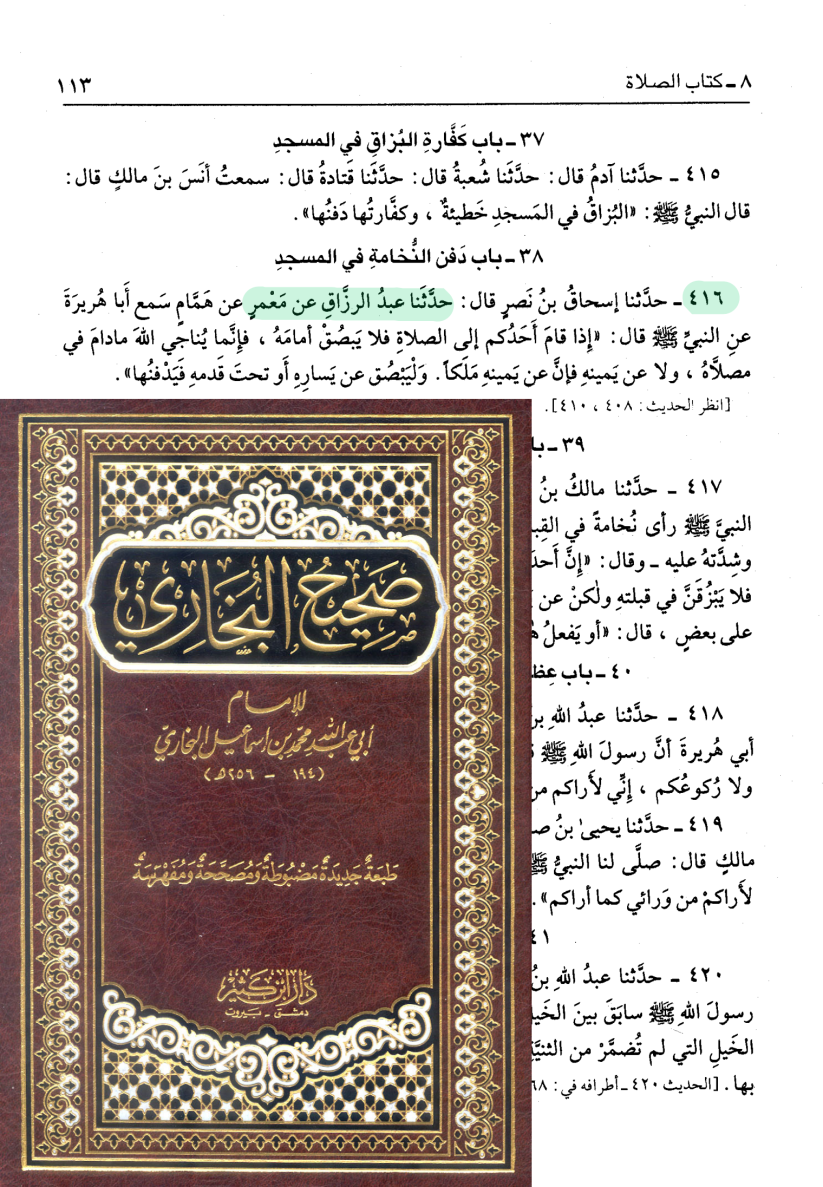 ٨ ـ كتاب الصلاة
١١٣
٣٧ ـ باب كَفَّارةِ البُزاقِ في المسجدِ
٤١٥ ـ حدَّثنا آدمُ قال: حدَّثَنا شُعبةُ قال: حدَّثَنا قَتادةُ قال: سمعتُ أنَسَ بنَ مالكٍ قال:
قال النبيُّ ﷺ: «البُزاقُ في المَسجدِ خَطيئةٌ ، وكفَّارتُها دَفنُها».
٣٨ ـ باب دَفنِ النُّخامةِ في المسجدِ
٤١٦ ـ حدَّثنا إسحاقُ بنُ نَصرٍ قال: حدَّثَنا عبدُ الرزَّاقِ عن مَعْمرٍ عن هَمَّامٍ سَمع أَبا هُريرَةَ
عنِ النبيِّ ﷺ قال: «إذا قامَ أَحَدُكم إلى الصلاةِ فلا يَبصُقْ أمامَهُ ، فإنَّما يُناجي اللهَ مادامَ في
مصلاَّهُ ، ولا عن يَمينهِ فإنَّ عن يَمينهِ مَلَكاً. وَلْيَبْصُق عن يَسارِهِ أَو تحتَ قَدمهِ فَيَدْفنُها».
[انظر الحديث: ٤٠٨ ، ٤١٠].
٣٩ ـ با
٤١٧ ـ حدَّثنا مالكُ بنُ
النبيَّ ﷺ رأى نُخامةً في القِبـ
وشِدَّتهُ عليه ـ وقال: «إنَّ أَحدَ
فلا يَبْزُقَنَّ في قبلتهِ ولٰكنْ عن
على بعضٍ ، قال: «أو يَفعلُ هٰـ
٤٠ ـ باب عِظـ
٤١٨ ـ حدَّثنا عبدُ اللهِ بن
أبي هُريرةَ أنَّ رسولَ اللهِ ﷺ
ولا رُكوعُكم ، إنِّي لأَراكم من
٤١٩ ـ حدَّثنا يحيىٰ بنُ صـ
مالكٍ قال: صلَّى لنا النبيُّ ﷺ
لأَراكمْ من وَرائي كما أراكم».
٤١
٤٢٠ ـ حدَّثنا عبدُ اللهِ بنُ
رسولَ اللهِ ﷺ سابَقَ بينَ الخَيـ
الخَيلِ التي لم تُضمَّرْ من الثنيَّـ
بها. [الحديث ٤٢٠ ـ أطرافه في: ٦٨
صَحِيحُ البُخَارِي
للإمَام
أبي عبد الله محمّد بن اسماعيل البخاريّ
(١٩٤ - ٢٥٦ هـ)
طَبعَةٌ جَدِيدَةٌ مَضْبُوطَةٌ وَمُصَحَّحَةٌ وَمُفَهْرَسَةٌ
دار ابن كثير
دمشق - بيروت